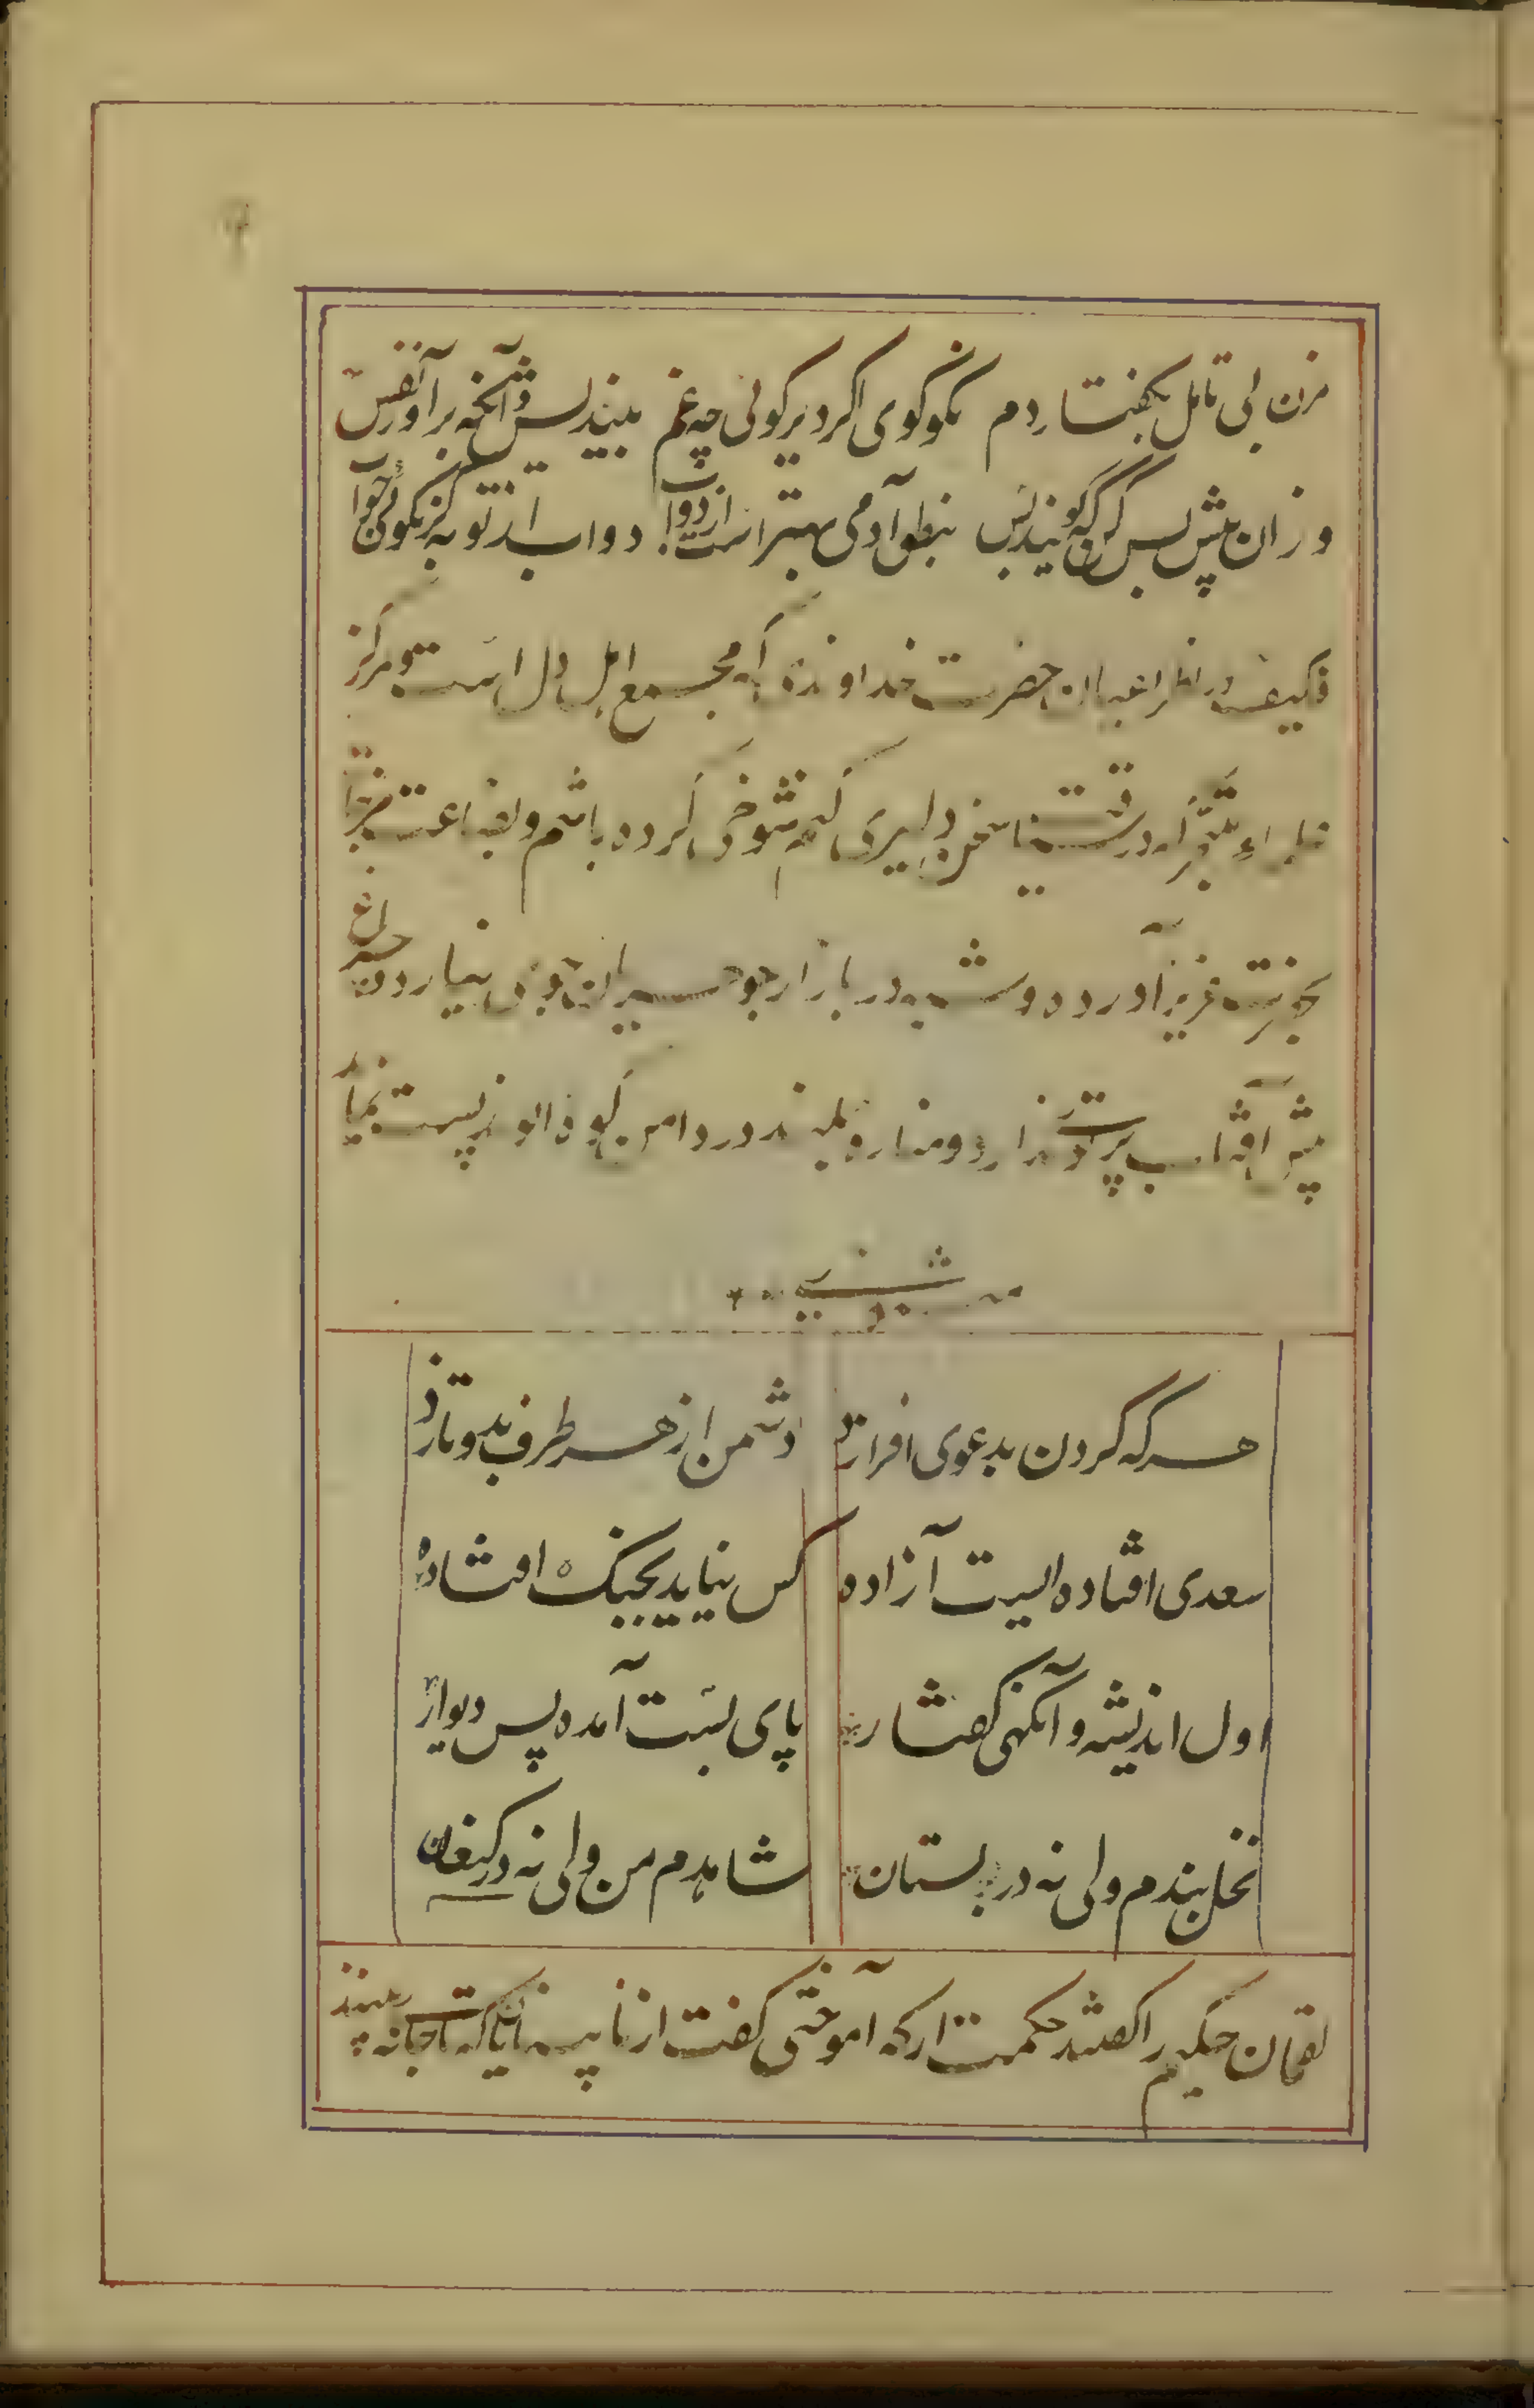 مزن بی تامل بگفتار دم نکو گوی اگر دیر گوئی چه غم بیندیش و آنگه برآور نفس
وزان پیش بس کن که گویند بس بنطق آدمی بهتر است از دواب دواب از تو به گر نگوئی صواب
فکیف در نظر اعیان حضرت خداوندی که مجمع اهل دل است و مرکز
علماء متبحر که در سیاقت سخن دلیری کنم شوخی کرده باشم و بضاعت مزجاة
بحضرت عزیز آورده و شبه در بازار جوهریان جوی نیارد و چراغ
پیش آفتاب پرتوی ندارد و مناره بلند در دامن کوه الوند پست نماید
مثنوی
هرکه گردن بدعوی افرازد دشمن از هر طرف بدو تازد
سعدی افتاده ایست آزاده کس نیاید بجنگ افتاده
اول اندیشه و آنگهی گفتار پای بست آمده پس دیوار
نخل بندم ولی نه در بستان شاهدم من ولی نه در کنعان
لقمان حکیم را گفتند حکمت از که آموختی گفت از نابینایان که تا جای نه بینند